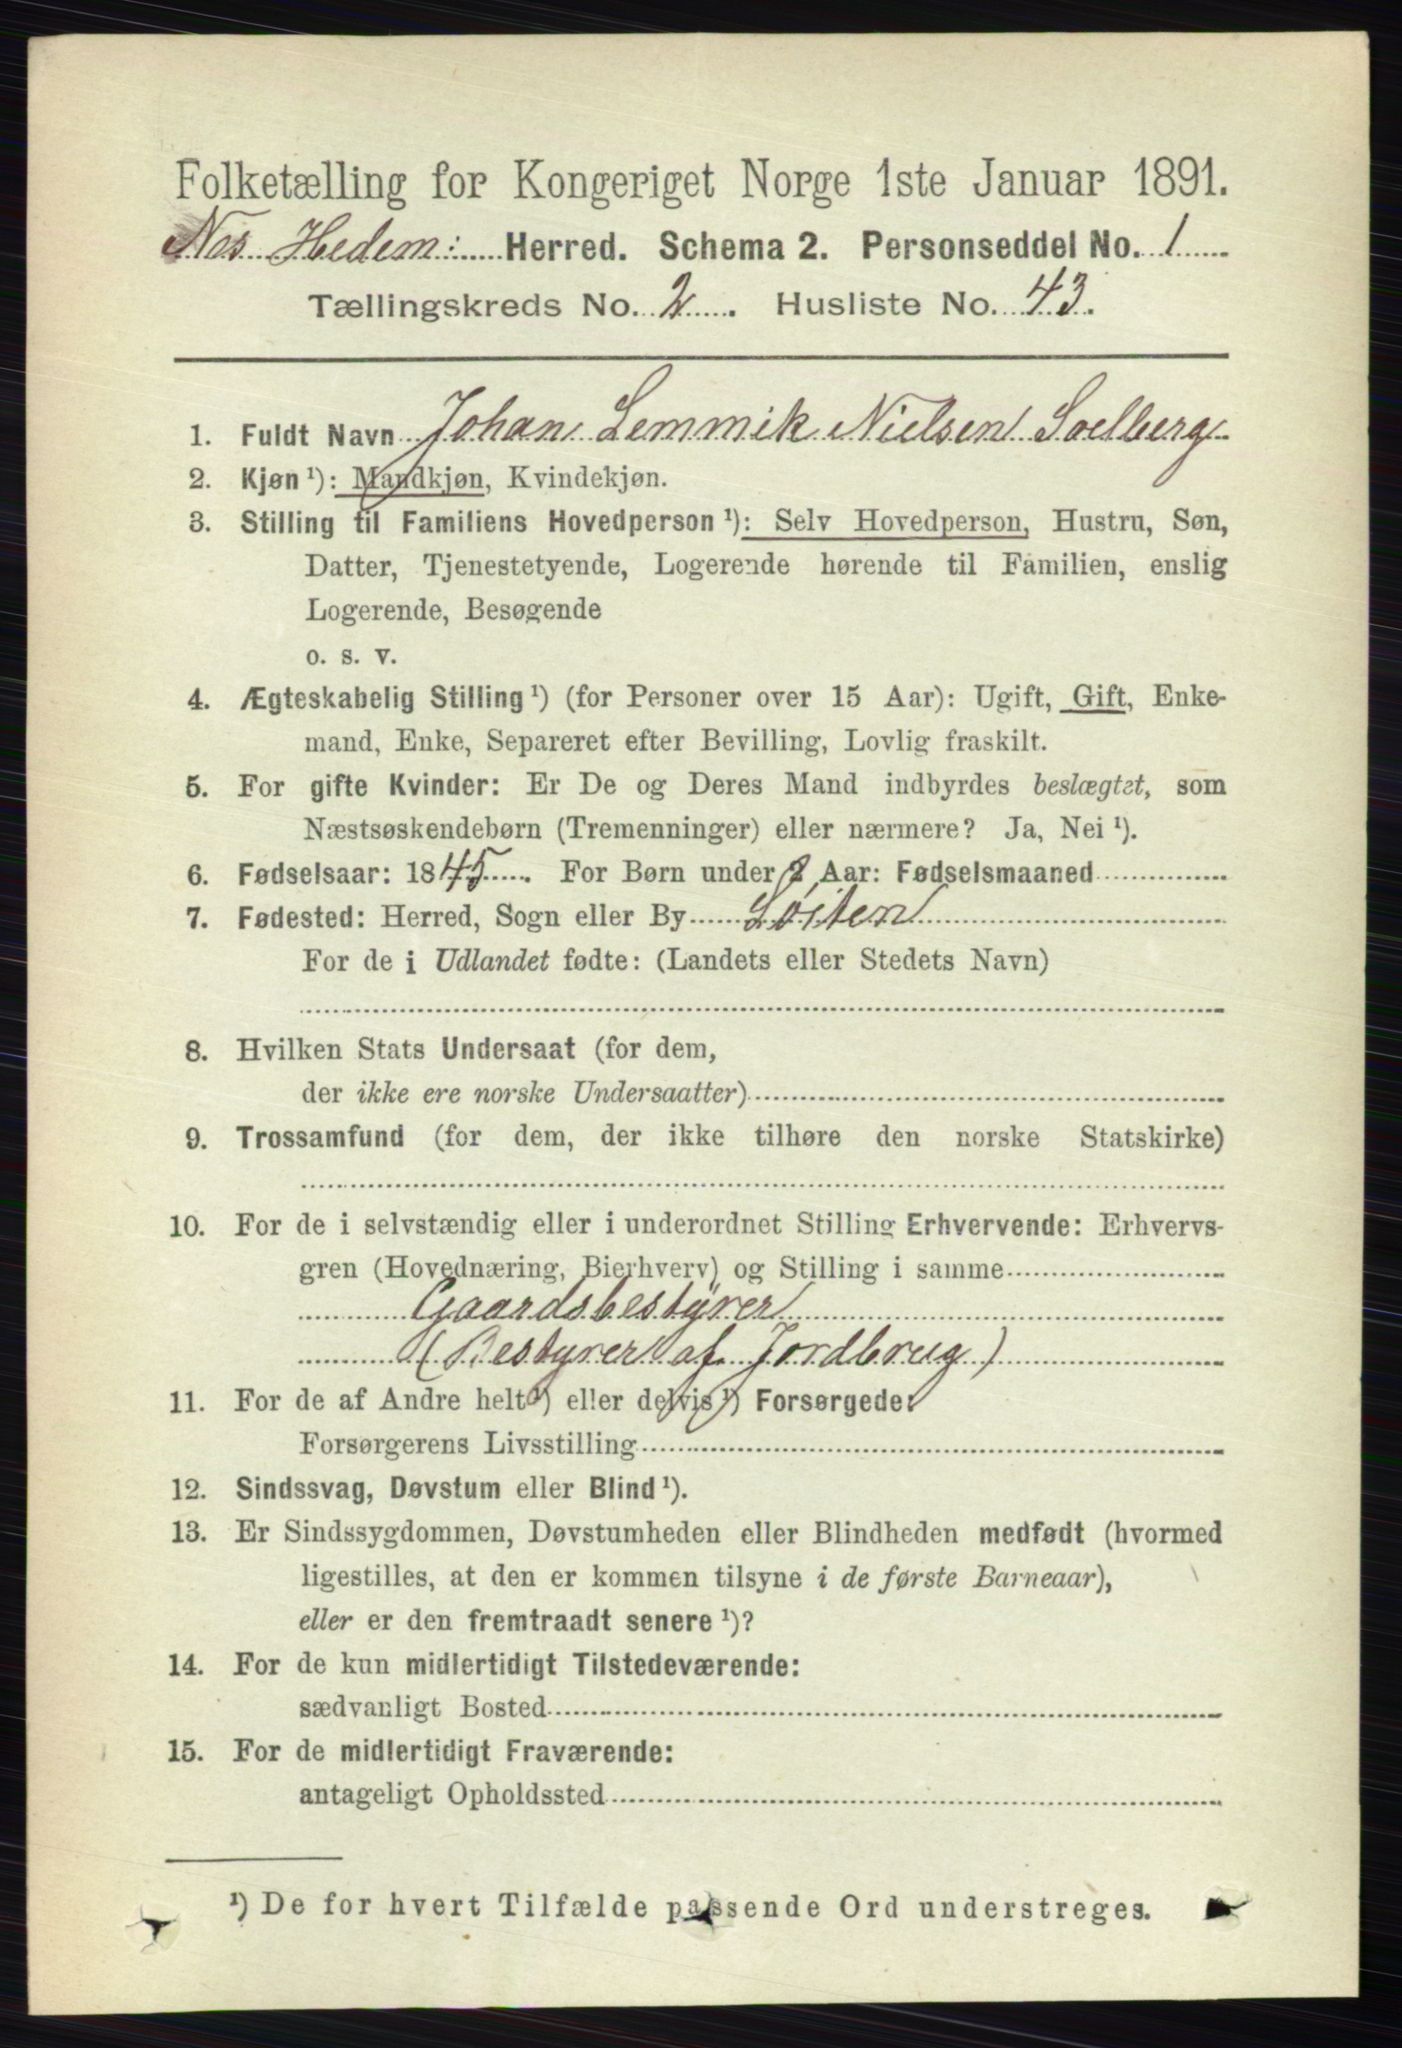 Folketælling for Kongeriget Norge 1ste Januar 1891.
Nes Hedem: Herred. Schema 2. Personseddel No. 1
Tællingskreds No. 2. Husliste No. 43.
1. Fuldt Navn Johan Lemmik Nielsen Soelberg
2. Kjøn ¹): Mandkjøn, Kvindekjøn.
3. Stilling til Familiens Hovedperson ¹): Selv Hovedperson, Hustru, Søn,
Datter, Tjenestetyende, Logerende hørende til Familien, enslig
Logerende, Besøgende
o. s. v.
4. Ægteskabelig Stilling ¹) (for Personer over 15 Aar): Ugift, Gift, Enke-
mand, Enke, Separeret efter Bevilling, Lovlig fraskilt.
5. For gifte Kvinder: Er De og Deres Mand indbyrdes beslægtet, som
Næstsøskendebørn (Tremenninger) eller nærmere? Ja, Nei ¹).
6. Fødselsaar: 1845. For Børn under 2 Aar: Fødselsmaaned
7. Fødested: Herred, Sogn eller By Löiten
For de i Udlandet fødte: (Landets eller Stedets Navn)
8. Hvilken Stats Undersaat (for dem,
der ikke ere norske Undersaatter)
9. Trossamfund (for dem, der ikke tilhøre den norske Statskirke)
10. For de i selvstændig eller i underordnet Stilling Erhvervende: Erhvervs-
gren (Hovednæring, Bierhverv) og Stilling i samme
Gaardsbestÿrer
(Bestyrer af Jordbrug)
11. For de af Andre helt ¹) eller delvis ¹) Forsørgede:
Forsørgerens Livsstilling
12. Sindssvag, Døvstum eller Blind ¹).
13. Er Sindssygdommen, Døvstumheden eller Blindheden medfødt (hvormed
ligestilles, at den er kommen tilsyne i de første Barneaar),
eller er den fremtraadt senere ¹)?
14. For de kun midlertidigt Tilstedeværende:
sædvanligt Bosted
15. For de midlertidigt Fraværende:
antageligt Opholdssted
¹) De for hvert Tilfælde passende Ord understreges.